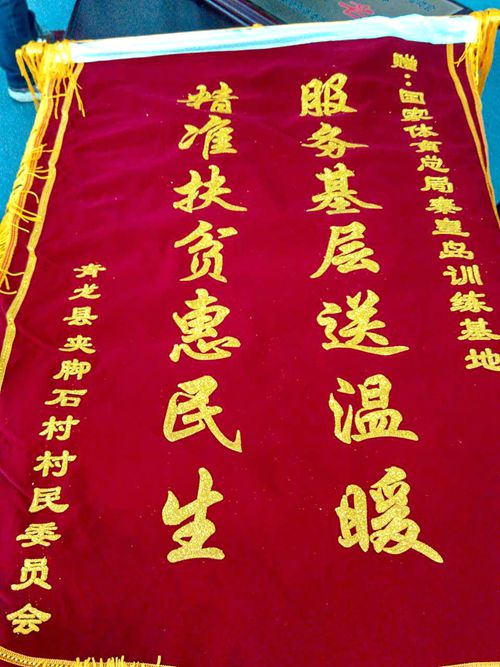 赠：国家体育总局秦皇岛训练基地
服务基层送温暖
精准扶贫惠民生
青龙县夹脚石村村民委员会